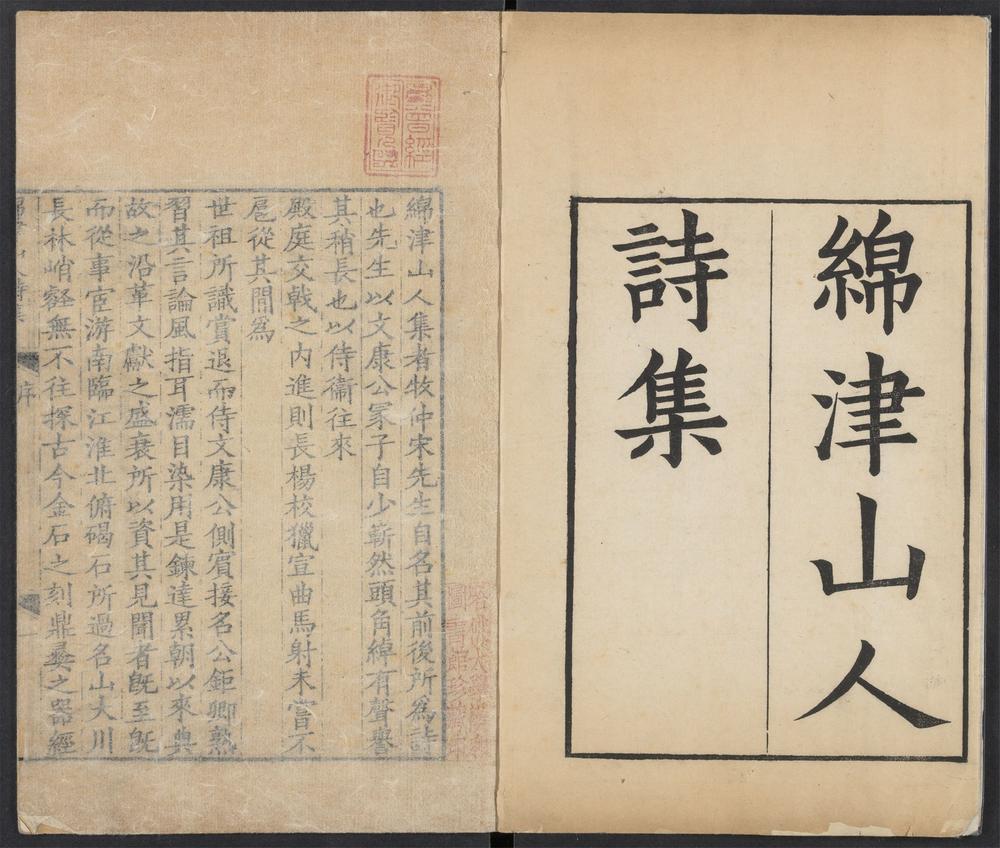 綿津山人
詩集
綿津山人集者牧仲宋先生自名其前後所爲詩
也先生以文康公冡子自少嶄然頭角綽有聲譽
其稍長也以侍衞往來
殿庭交戟之内進則長楊校獵宣曲馬射未嘗不
扈從其間爲
世祖所識賞退而侍文康公側賓接名公鉅卿熟
習其言論風指耳濡目染用是鍊達累朝以來典
故之沿革文獻之盛衰所以資其見聞者旣至旣
而從事宦游南臨江淮北俯碣石所過名山大川
長林峭壑無不往探古今金石之刻鼎彞之器經
序